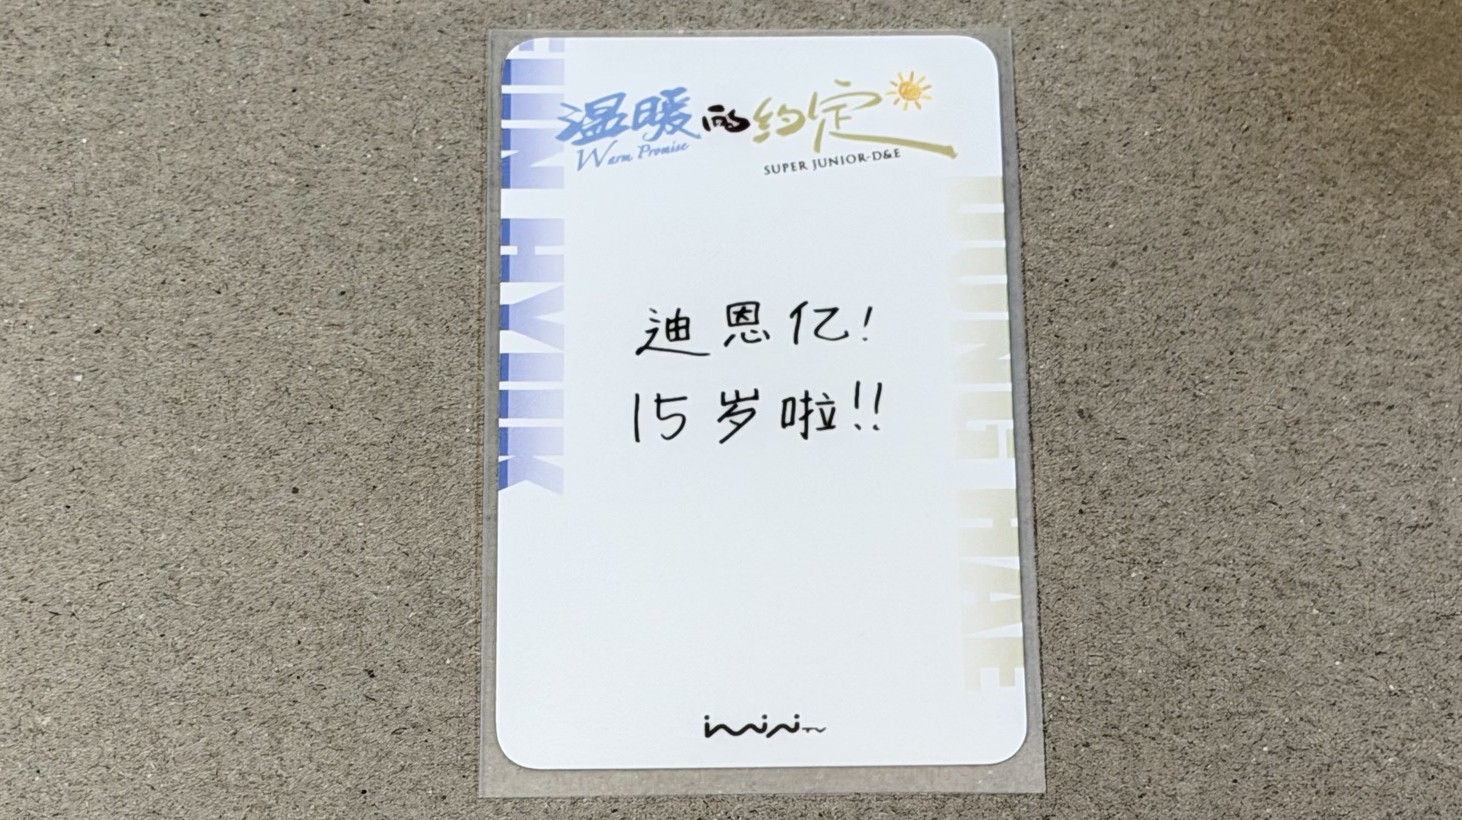 温暖的约定
Warm Promise
SUPER JUNIOR-D&E
EUN HYUK
DONG HAE
迪恩亿!
15岁啦!!
iminiTV